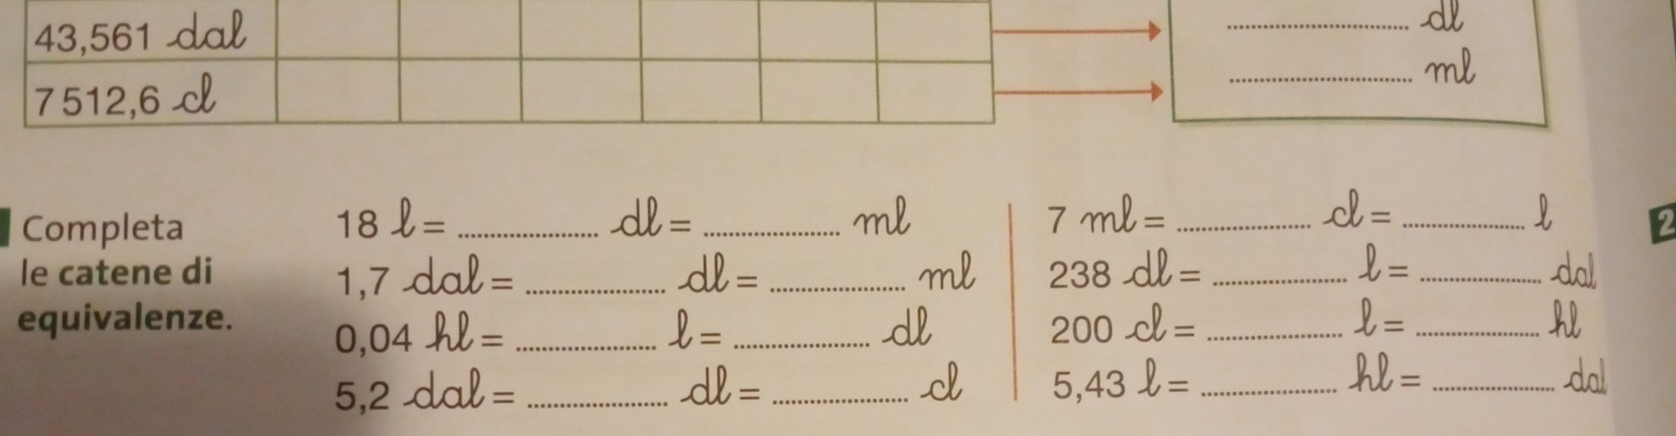 43,561 dal
7 512,6 cl
.................... dl
.................... ml
Completa
le catene di
equivalenze.
18 l = ................ dl = ................ ml
1,7 dal = ................ dl = ................ ml
0,04 hl = ................ l = ................ dl
5,2 dal = ................ dl = ................ cl
7 ml = ................ cl = ................ l
238 dl = ................ l = ................ dal
200 cl = ................ l = ................ hl
5,43 l = ................ hl = ................ dal
2